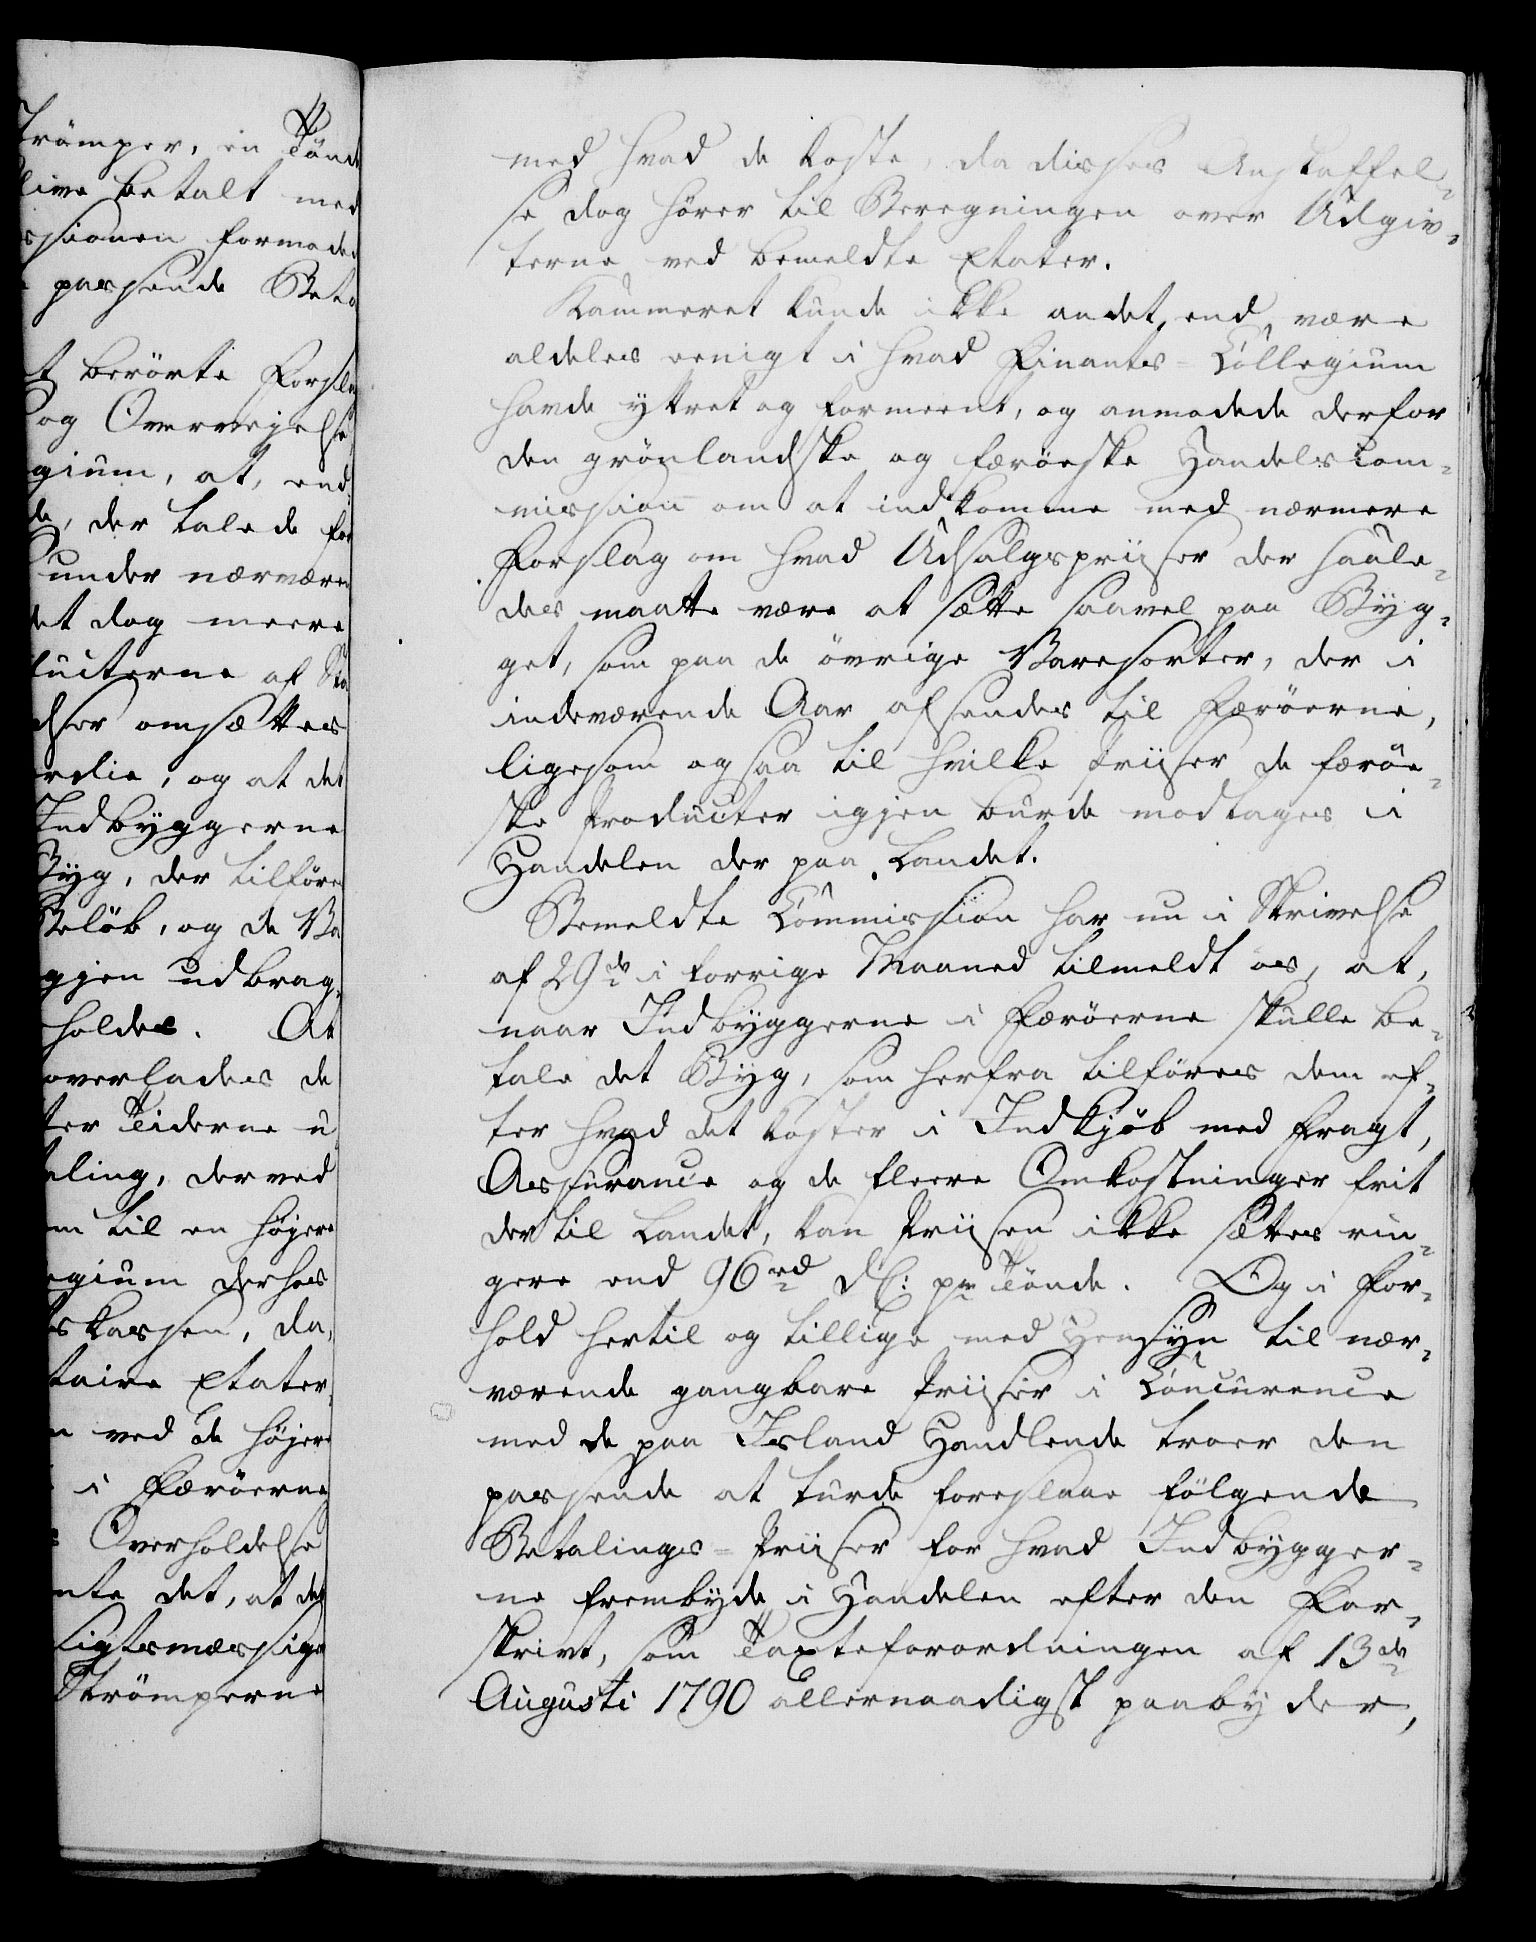 Trömper, en Tönde
live betalt med
ssionen formoder
passende Beta
t berörte Forsla
og Overvejelse
gium, at, end
de, der talede for
under nærværen
det dog meere
ducterne af
dser omsættes
rdie, og at det
Indbyggerne
Byg, der tilföres
Beløb, og de Va
gjen udbrag,
holdes. At
overlades de
ter Tiderne u
aling, derved
m til en højere
egium derhos
skassen, da,
taire Etater,
n ved de højere
i Færöerne
Overholdelse
nte det, at de
sigtsmæssige
Strömperne
med hvad de koste, da disses Anskaffel-
se dog hörer til Beregningen over Udgiv-
terne ved bemeldte Etater.
Kammeret kunde ikke andet, end, være
aldeles eenigt i hvad Finants-Collegium
havde yttret og formeent, og anmodede derfor
den grönlandske og færöeske Handelscom-
mission om at indkomme med nærmere
Forslag om hvad Udsalgspriiser der saale-
des maatte være at sætte saavel paa Byg-
get, som paa de övrige Varesorter, der i
indeværende Aar afsendes til Færöerne,
ligesom ogsaa til hvilke Priiser de færöe-
ske Producter igjen burde modtages i
Handelen der paa Landet.
Bemeldte Commission har nu i Skrivelse
af 29de i forrige Maaned tilmeldt os, at,
naar Indbyggerne i Færöerne skulle be-
tale det Byg, som herfra tilföres dem ef-
ter hvad det koster i Indkjöb med Fragt,
Assurance og de fleere Omkostninger frit
der til Landet, kan Priisen ikke sættes rin-
gere end 96 rd dC: pr Tönde. Og i For-
hold hertil og tillige med Hensyn til nær-
værende gangbare Priiser i Concurence
med de paa Island Handlende troer den
passende at turde foreslaae fölgende
Betalings-Priiser for hvad Indbygger-
ne frembyde i Handelen efter den For-
skrivt, som Taxteforordningen af 13de
Augusti 1790 allernaadigst paabyder,